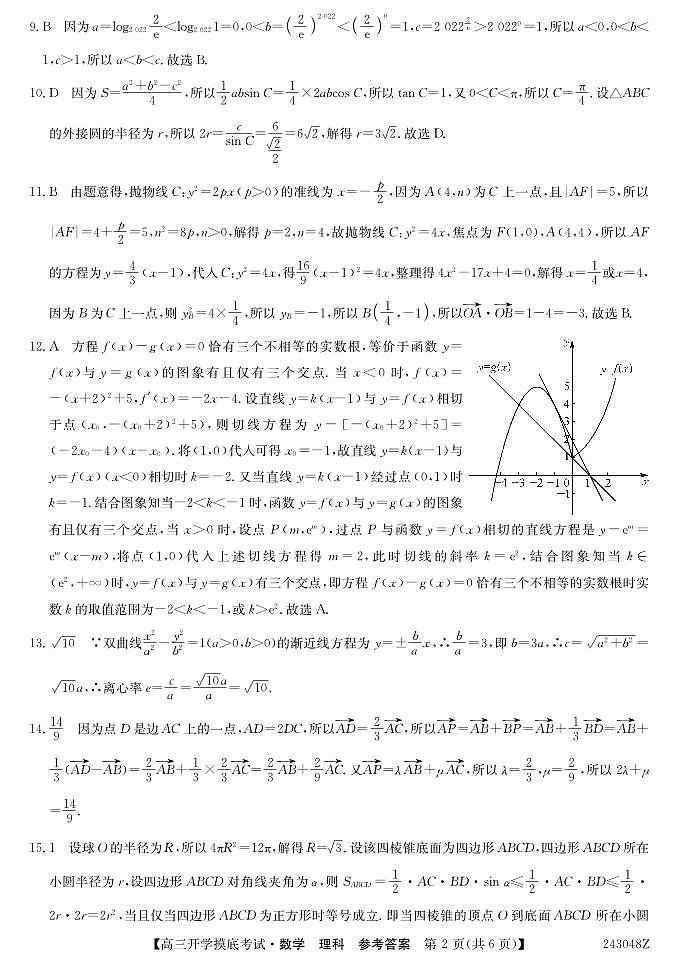 9. B　因为 a=log₂ ₀₂₂ 2/e<log₂ ₀₂₂ 1=0,0<b=(2/e)^2 022<(2/e)^0=1,c=2 022^(2/e)>2 022^0=1,所以 a<0,0<b<
1,c>1,所以 a<b<c. 故选 B.
10. D　因为 S=(a²+b²-c²)/4,所以 1/2 absin C=1/4×2abcos C,所以 tan C=1,又 0<C<π,所以 C=π/4. 设△ABC
的外接圆的半径为 r,所以 2r=c/sin C=6/(√2/2)=6√2,解得 r=3√2. 故选 D.
11. B　由题意得,抛物线 C:y²=2px(p>0)的准线为 x=-p/2,因为 A(4,n)为 C 上一点,且|AF|=5,所以
|AF|=4+p/2=5,n²=8p,n>0,解得 p=2,n=4,故抛物线 C:y²=4x,焦点为 F(1,0),A(4,4),所以 AF
的方程为 y=4/3(x-1),代入 C:y²=4x,得 16/9(x-1)²=4x,整理得 4x²-17x+4=0,解得 x=1/4 或 x=4,
因为 B 为 C 上一点,则 y_B²=4×1/4,所以 y_B=-1,所以 B(1/4,-1),所以 OA→·OB→=1-4=-3. 故选 B.
12. A　方程 f(x)-g(x)=0 恰有三个不相等的实数根,等价于函数 y=
f(x)与 y=g(x)的图象有且仅有三个交点. 当 x<0 时,f(x)=
-(x+2)²+5,f′(x)=-2x-4. 设直线 y=k(x-1)与 y=f(x)相切
于点 (x₀,-(x₀+2)²+5),则切线方程为 y-[-(x₀+2)²+5]=
(-2x₀-4)(x-x₀). 将(1,0)代入可得 x₀=-1,故直线 y=k(x-1)与
y=f(x)(x<0)相切时 k=-2. 又当直线 y=k(x-1)经过点(0,1)时
k=-1. 结合图象知当-2<k<-1 时,函数 y=f(x)与 y=g(x)的图象
y
y=g(x)
y=f(x)
5
4
3
2
1
-4 -3 -2 -1 O 1 2 x
-1
有且仅有三个交点,当 x>0 时,设点 P(m,e^m),过点 P 与函数 y=f(x)相切的直线方程是 y-e^m=
e^m(x-m),将点 (1,0)代入上述切线方程得 m=2,此时切线的斜率 k=e²,结合图象知当 k∈
(e²,+∞)时,y=f(x)与 y=g(x)有三个交点,即方程 f(x)-g(x)=0 恰有三个不相等的实数根时实
数 k 的取值范围为-2<k<-1,或 k>e². 故选 A.
13. √10　∵双曲线 x²/a²-y²/b²=1(a>0,b>0)的渐近线方程为 y=±b/a x,∴b/a=3,即 b=3a,∴c=√(a²+b²)=
√10a,∴离心率 e=c/a=√10a/a=√10.
14. 14/9　因为点 D 是边 AC 上的一点,AD=2DC,所以AD→=2/3 AC→,所以AP→=AB→+BP→=AB→+1/3 BD→=AB→+
1/3(AD→-AB→)=2/3 AB→+1/3×2/3 AC→=2/3 AB→+2/9 AC→. 又AP→=λAB→+μAC→,所以 λ=2/3,μ=2/9,所以 2λ+μ
=14/9.
15. 1　设球 O 的半径为 R,所以 4πR²=12π,解得 R=√3. 设该四棱锥底面为四边形 ABCD,四边形 ABCD 所在
小圆半径为 r,设四边形 ABCD 对角线夹角为 α,则 S_ABCD=1/2·AC·BD·sin α≤1/2·AC·BD≤1/2·
2r·2r=2r²,当且仅当四边形 ABCD 为正方形时等号成立. 即当四棱锥的顶点 O 到底面 ABCD 所在小圆
【高三开学摸底考试·数学　理科　参考答案　第 2 页(共 6 页)】　243048Z